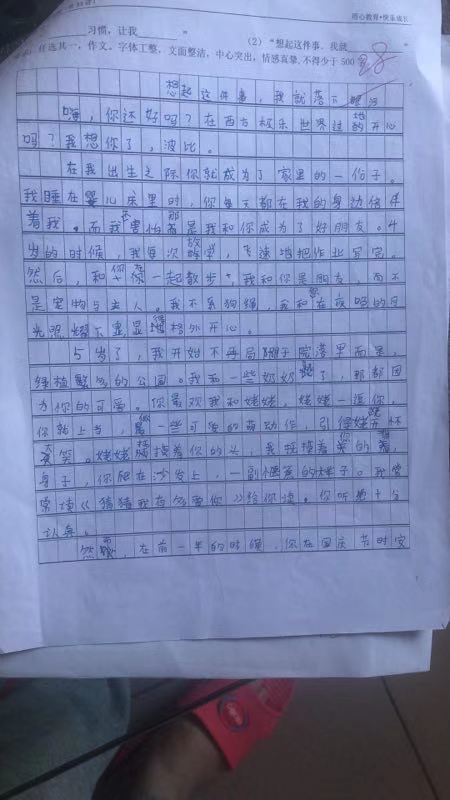 用心教育•快乐成长
习惯，让我 "
（2）"想起这件事，我就
任选其一，作文。字体工整，文面整洁，中心突出，情感真挚，不得少于 500
想起这件事，我就落下眼泪
嗨，你还好吗？在西方极乐世界过的开心
吗？我想你了，波比。
在我出生之际你就成为了家里的一份子。
我睡在婴儿床里时，你每天都在我的身边伴
着我。而我害怕 那是我和你成为了好朋友。4
岁的时候，我每次放学，飞速地把作业写完。
然后，和你在一起散步，我和你是朋友，而不
是宠物与主人。我不系狗绳，我和在夜晚的月
光照耀下显得格外开心。
5岁了，我开始不再局限于院落里而是，
绿植繁多的公园。我和一些奶奶 了，那都因
为你的可爱。你喜欢我和姥姥，姥姥一逗你，
你就上当，做一些可爱的萌动作，引得姥姥开怀
大笑。姥姥抚摸着你的头，我抚摸着你的
身子，你爬在沙发上，一副惬意的样子。我常
常读《猜猜我有多爱你》给你读。你听得十分
认真。
然而，在前一年的时候，你在国庆节时突